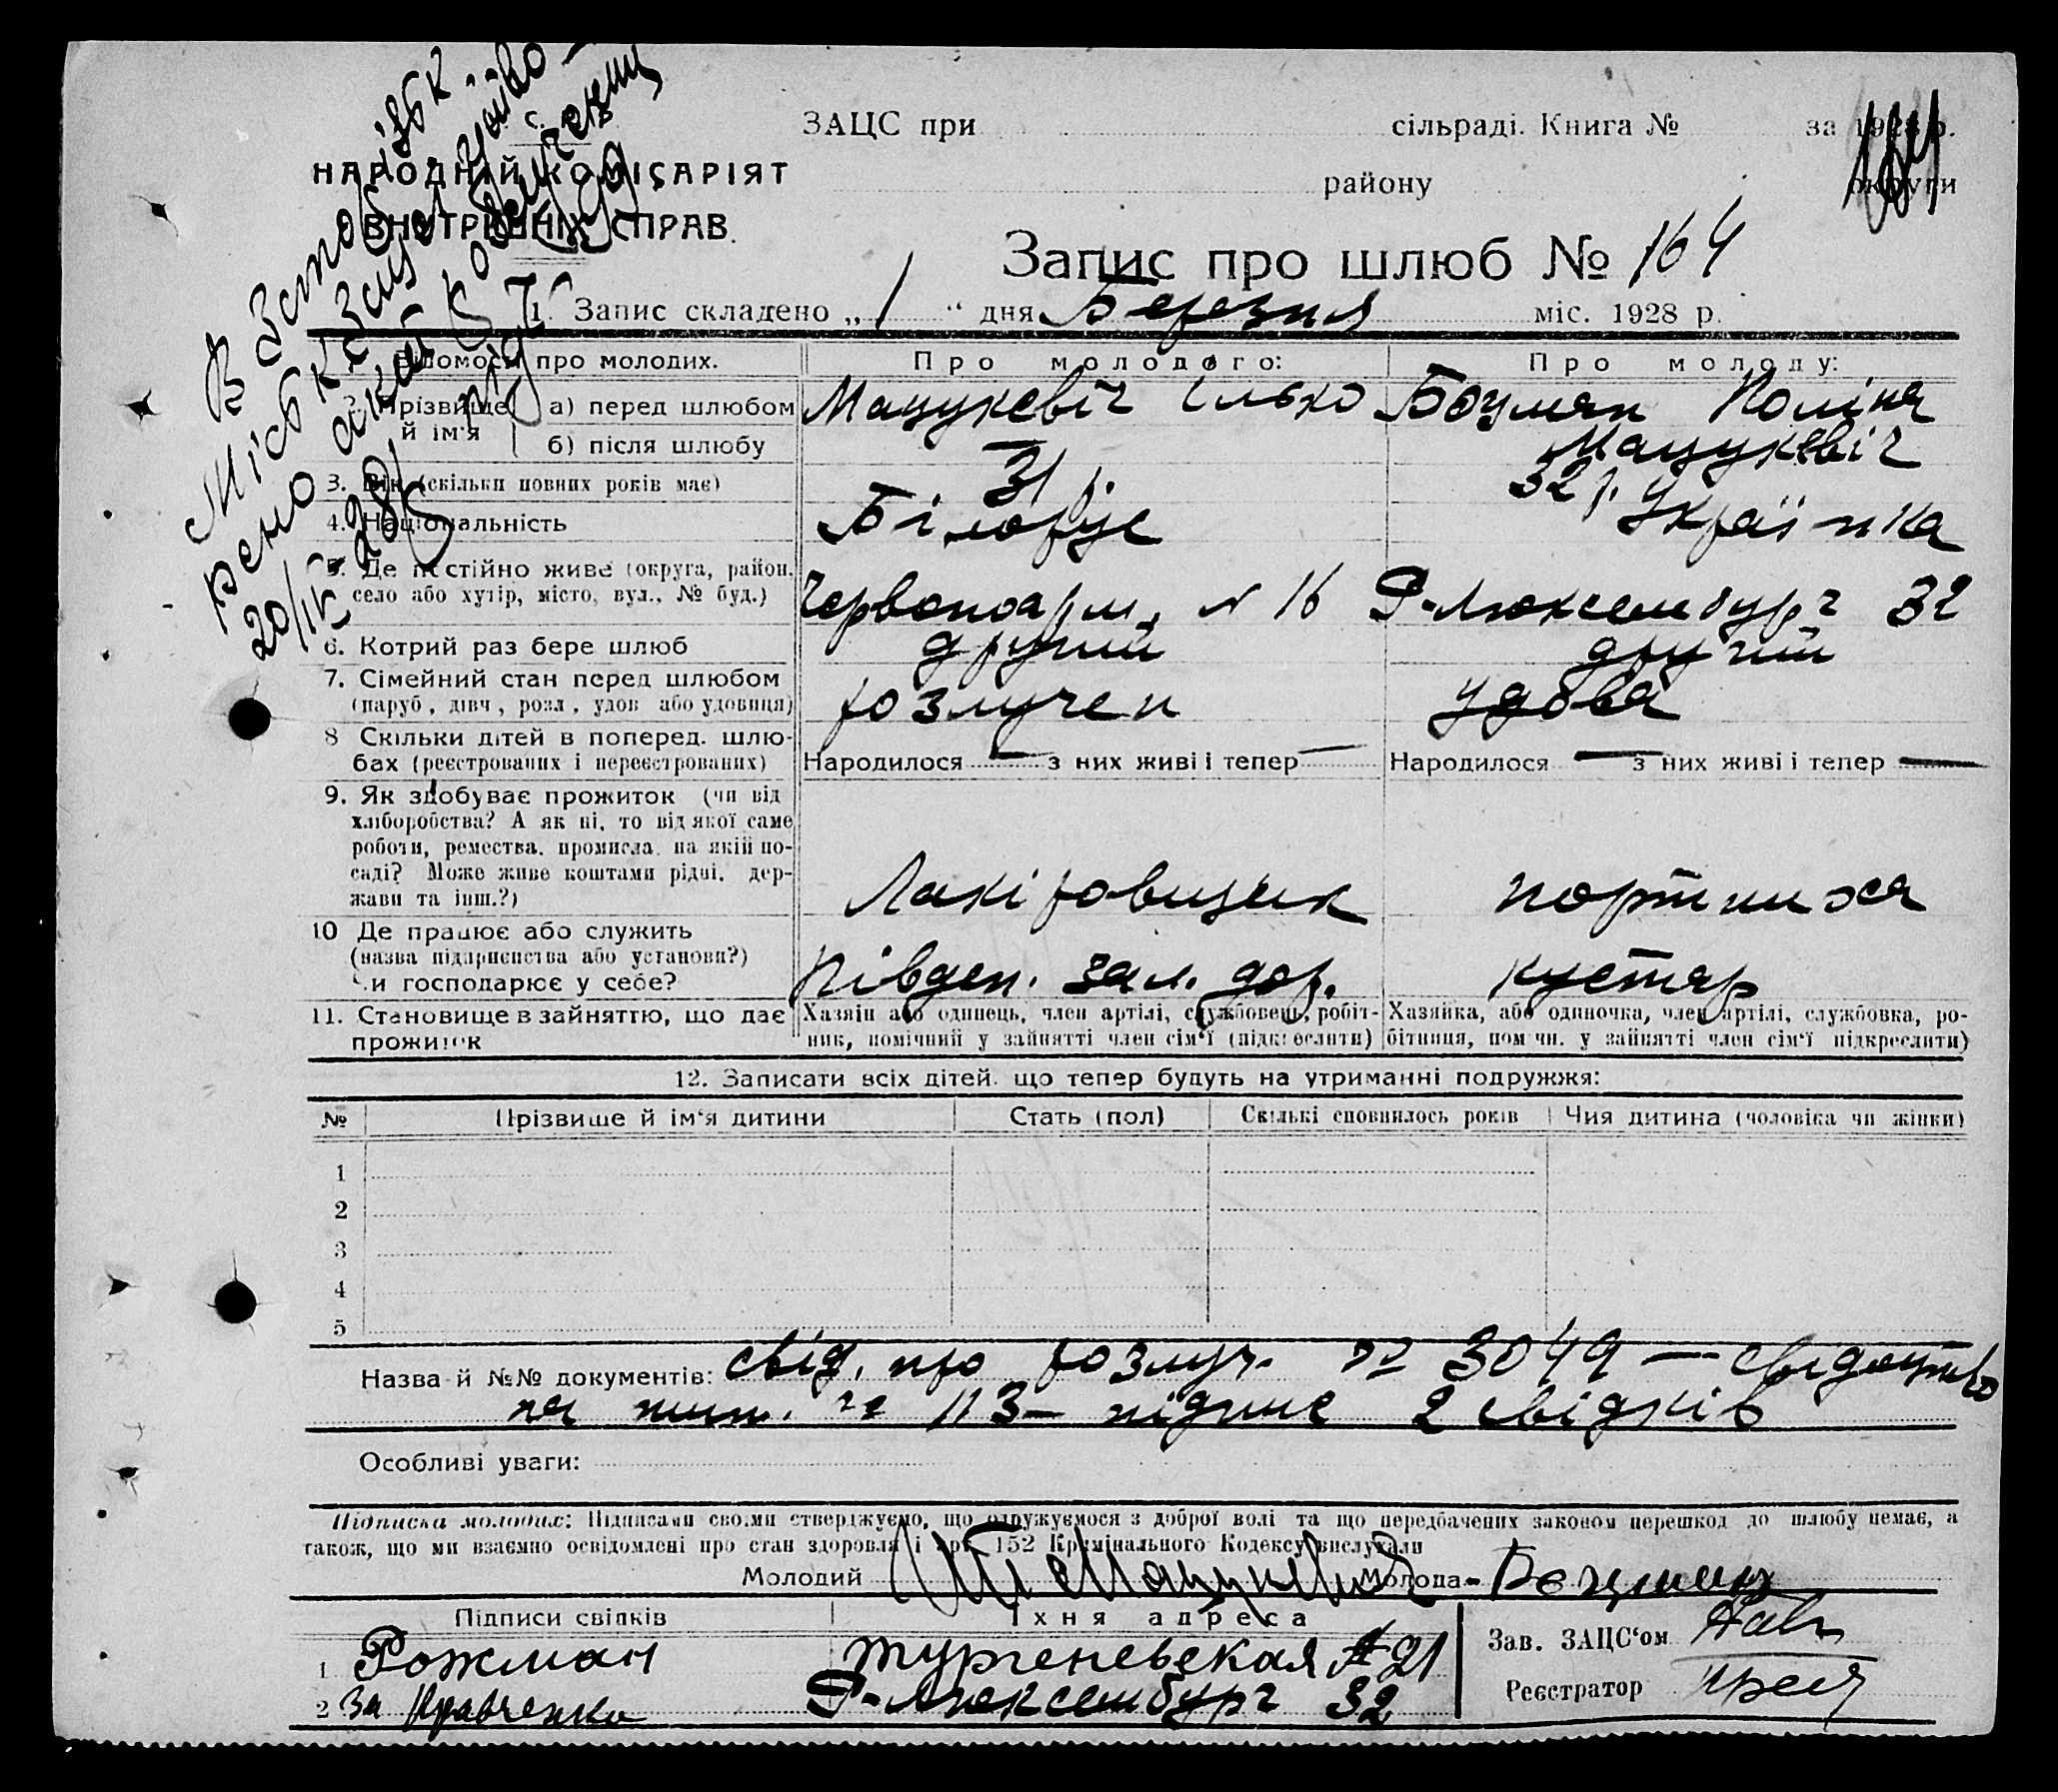 ЗАЦС при сільраді. Книга № за 1928 р.
НАРОДНІЙ КОМІСАРІЯТ району округи
ВНУТРІШНІХ СПРАВ.
Запис про шлюб № 164
1. Запис складено „ 1 " дня Березня міс. 1928 р.
В Запоріжж
Міськ Заці
20/IV-28 р.
Відомості про молодих. Про молодого: Про молоду:
2. Прізвище й ім'я а) перед шлюбом Мацукевіч Ілько Боуман Поліна
б) після шлюбу — Мацукевіч
3. Вік (скільки повних років має) 31 р. 32 р.
4. Національність Білорус Українка
5. Де постійно живе (округа, район, село або хутір, місто, вул., № буд.) Червоноарм. № 16 Р-Люксембург 32
6. Котрий раз бере шлюб другий другий
7. Сімейний стан перед шлюбом розлучен удова
(паруб., дівч., розл., удов. або удовиця)
8 Скільки дітей в поперед. шлю- Народилося — з них живі і тепер — Народилося — з них живі і тепер —
бах (реєстрованих і нереєстрованих)
9. Як здобуває прожиток (чи від
хліборобства? А як ні, то від якої саме
роботи, ремества, промисла, на якій по-
саді? Може живе коштами рідні, дер- Лакіровщик портниха
жави та інш.?)
10 Де працює або служить
(назва підприємства або установи?) Півден. зал. дор. кустар
Чи господарює у себе?
11. Становище в зайняттю, що дає Хазяїн або одинець, член артілі, службовець, робіт- Хазяйка, або одиночка, член артілі, службовка, ро-
прожиток ник, помічний у зайнятті член сім'ї (підкреслити) бітниця, помічн. у зайнятті член сім'ї підкреслити)
12. Записати всіх дітей, що тепер будуть на утриманні подружжя:
№ Прізвище й ім'я дитини Стать (пол) Скількі сповнилось років Чия дитина (чоловіка чи жінки)
1
2
3
4
5
Назва й №№ документів: свід. про розлуч. № 3049 — свідоцтво
на № 113 — підпис 2 свідків
Особливі уваги:
Підписка молодих: Підписами своїми стверджуємо, що одружуємося з доброї волі та що передбачених законом перешкод до шлюбу немає, а
також, що ми взаємно освідомлені про стан здоровля і арт. 152 Кримінального Кодексу вислухали
Молодий Мацукевич Молода Боуман
Підписи свідків Їхня адреса
1 Рожман Тургеневская № 21 Зав. ЗАЦС'ом
2 За Кравченко Р-Люксембург 32 Реєстратор